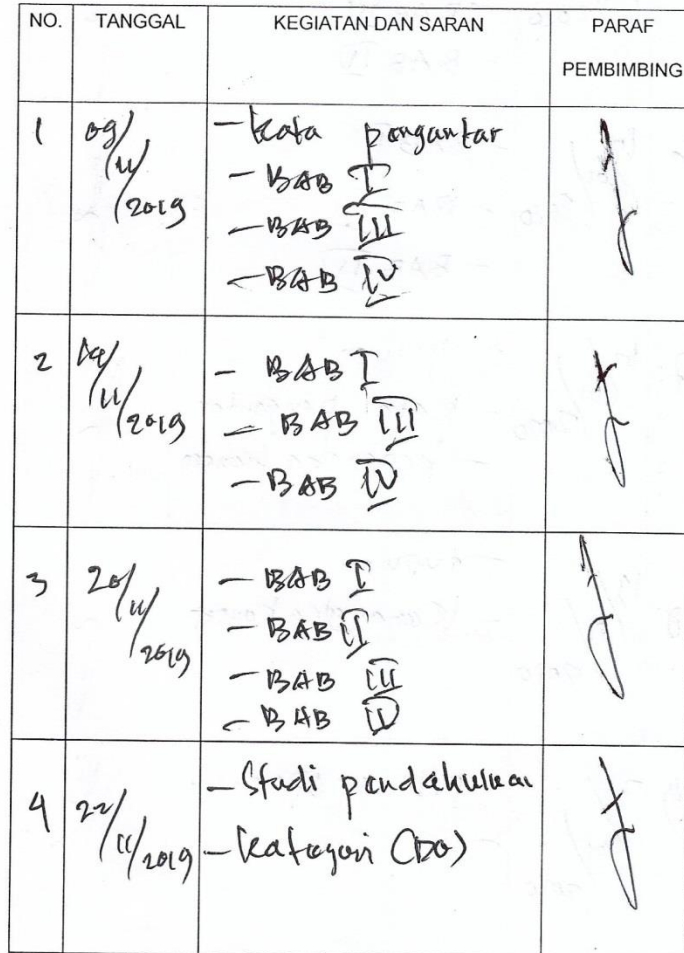 NO. TANGGAL KEGIATAN DAN SARAN PARAF
PEMBIMBING
1 09/11/2019 - Kata pengantar
- BAB I
- BAB III
- BAB IV
2 14/11/2019 - BAB I
- BAB III
- BAB IV
3 20/11/2019 - BAB I
- BAB II
- BAB III
- BAB IV
4 22/11/2019 - Studi pendahuluan
- Kategori (DO)